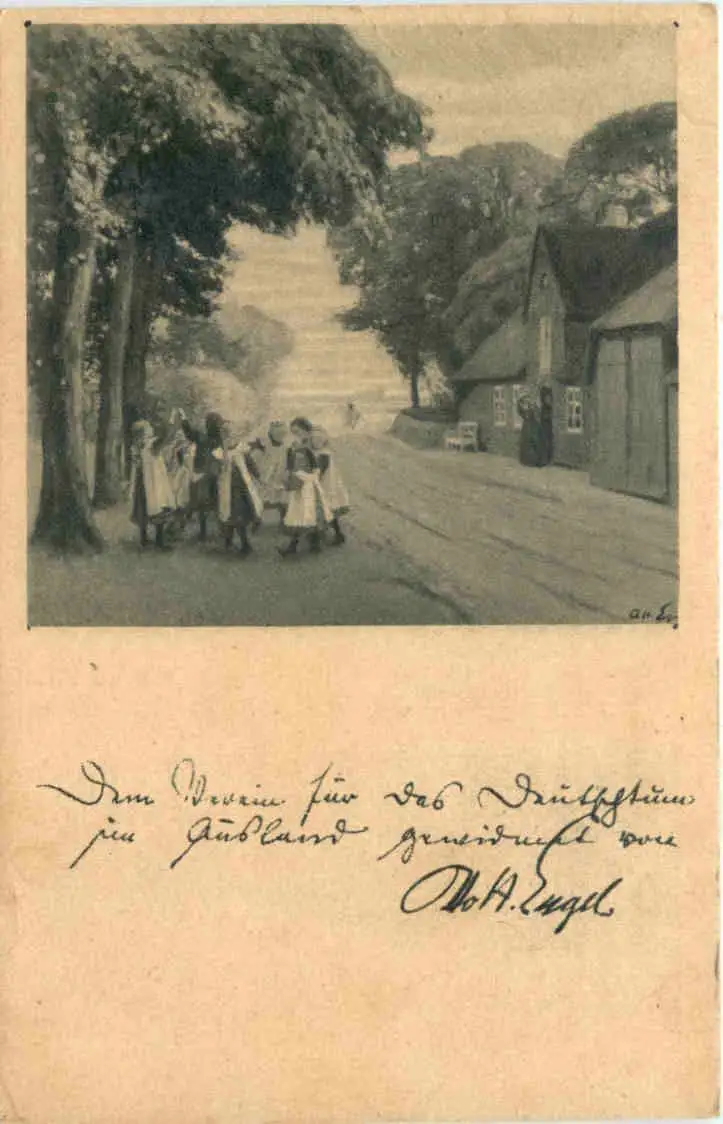 Dem Verein für das Deutschtum
im Ausland gewidmet von
Otto H. Engel